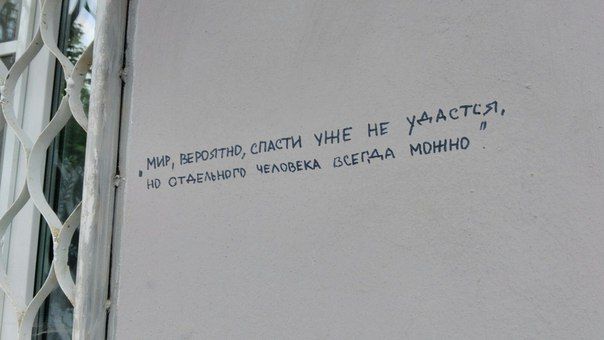 „МИР, ВЕРОЯТНО, СПАСТИ УЖЕ НЕ УДАСТСЯ,
НО ОТДЕЛЬНОГО ЧЕЛОВЕКА ВСЕГДА МОЖНО".